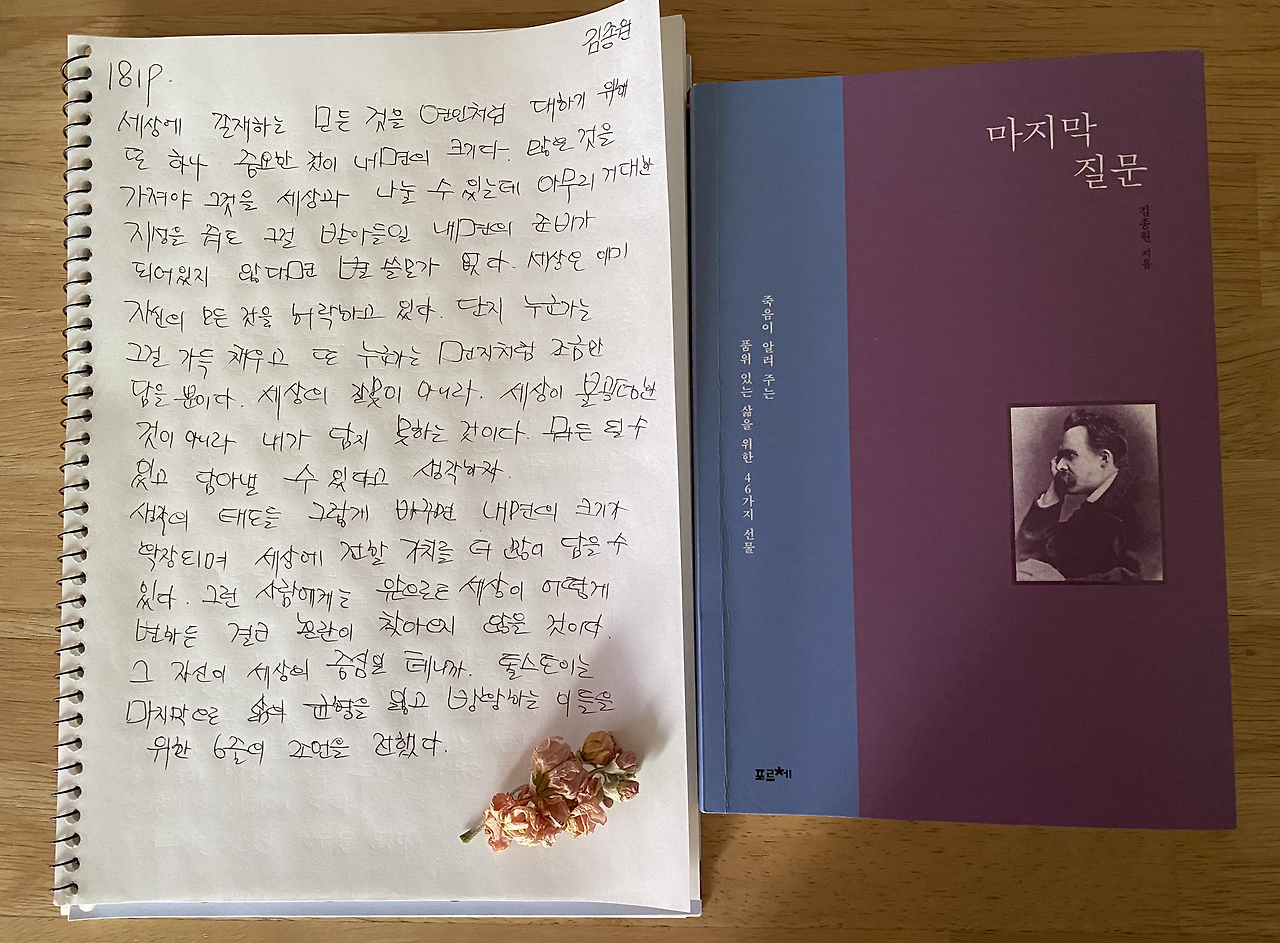 김종원
181P.
세상에 존재하는 모든 것을 연인처럼 대하기 위해
또 하나 중요한 것이 내면의 크기다. 많은 것을
가져야 그것을 세상과 나눌 수 있는데 아무리 거대한
지성을 줘도 그걸 받아들일 내면의 준비가
되어있지 않다면 별 쓸모가 없다. 세상은 이미
자신의 모든 것을 허락하고 있다. 단지 누군가는
그걸 가득 채우고 또 누군가는 먼지처럼 조금만
담을 뿐이다. 세상의 잘못이 아니라. 세상이 불공평한
것이 아니라 내가 담지 못하는 것이다. 뭐든 될 수
있고 담아낼 수 있다고 생각하자.
생각의 태도를 그렇게 바꾸면 내면의 크기가
확장되며 세상에 전할 가치를 더 많이 담을 수
있다. 그런 사람에게는 앞으로 세상이 어떻게
변하든 결코 혼란이 찾아오지 않을 것이다.
그 자신이 세상의 중심일 테니까. 톨스토이는
마지막으로 삶의 균형을 잃고 방황하는 이들을
위한 6줄의 조언을 전했다.
마지막
질문
김종원 지음
죽음이 알려 주는
품위 있는 삶을 위한 46가지 선물
포르체